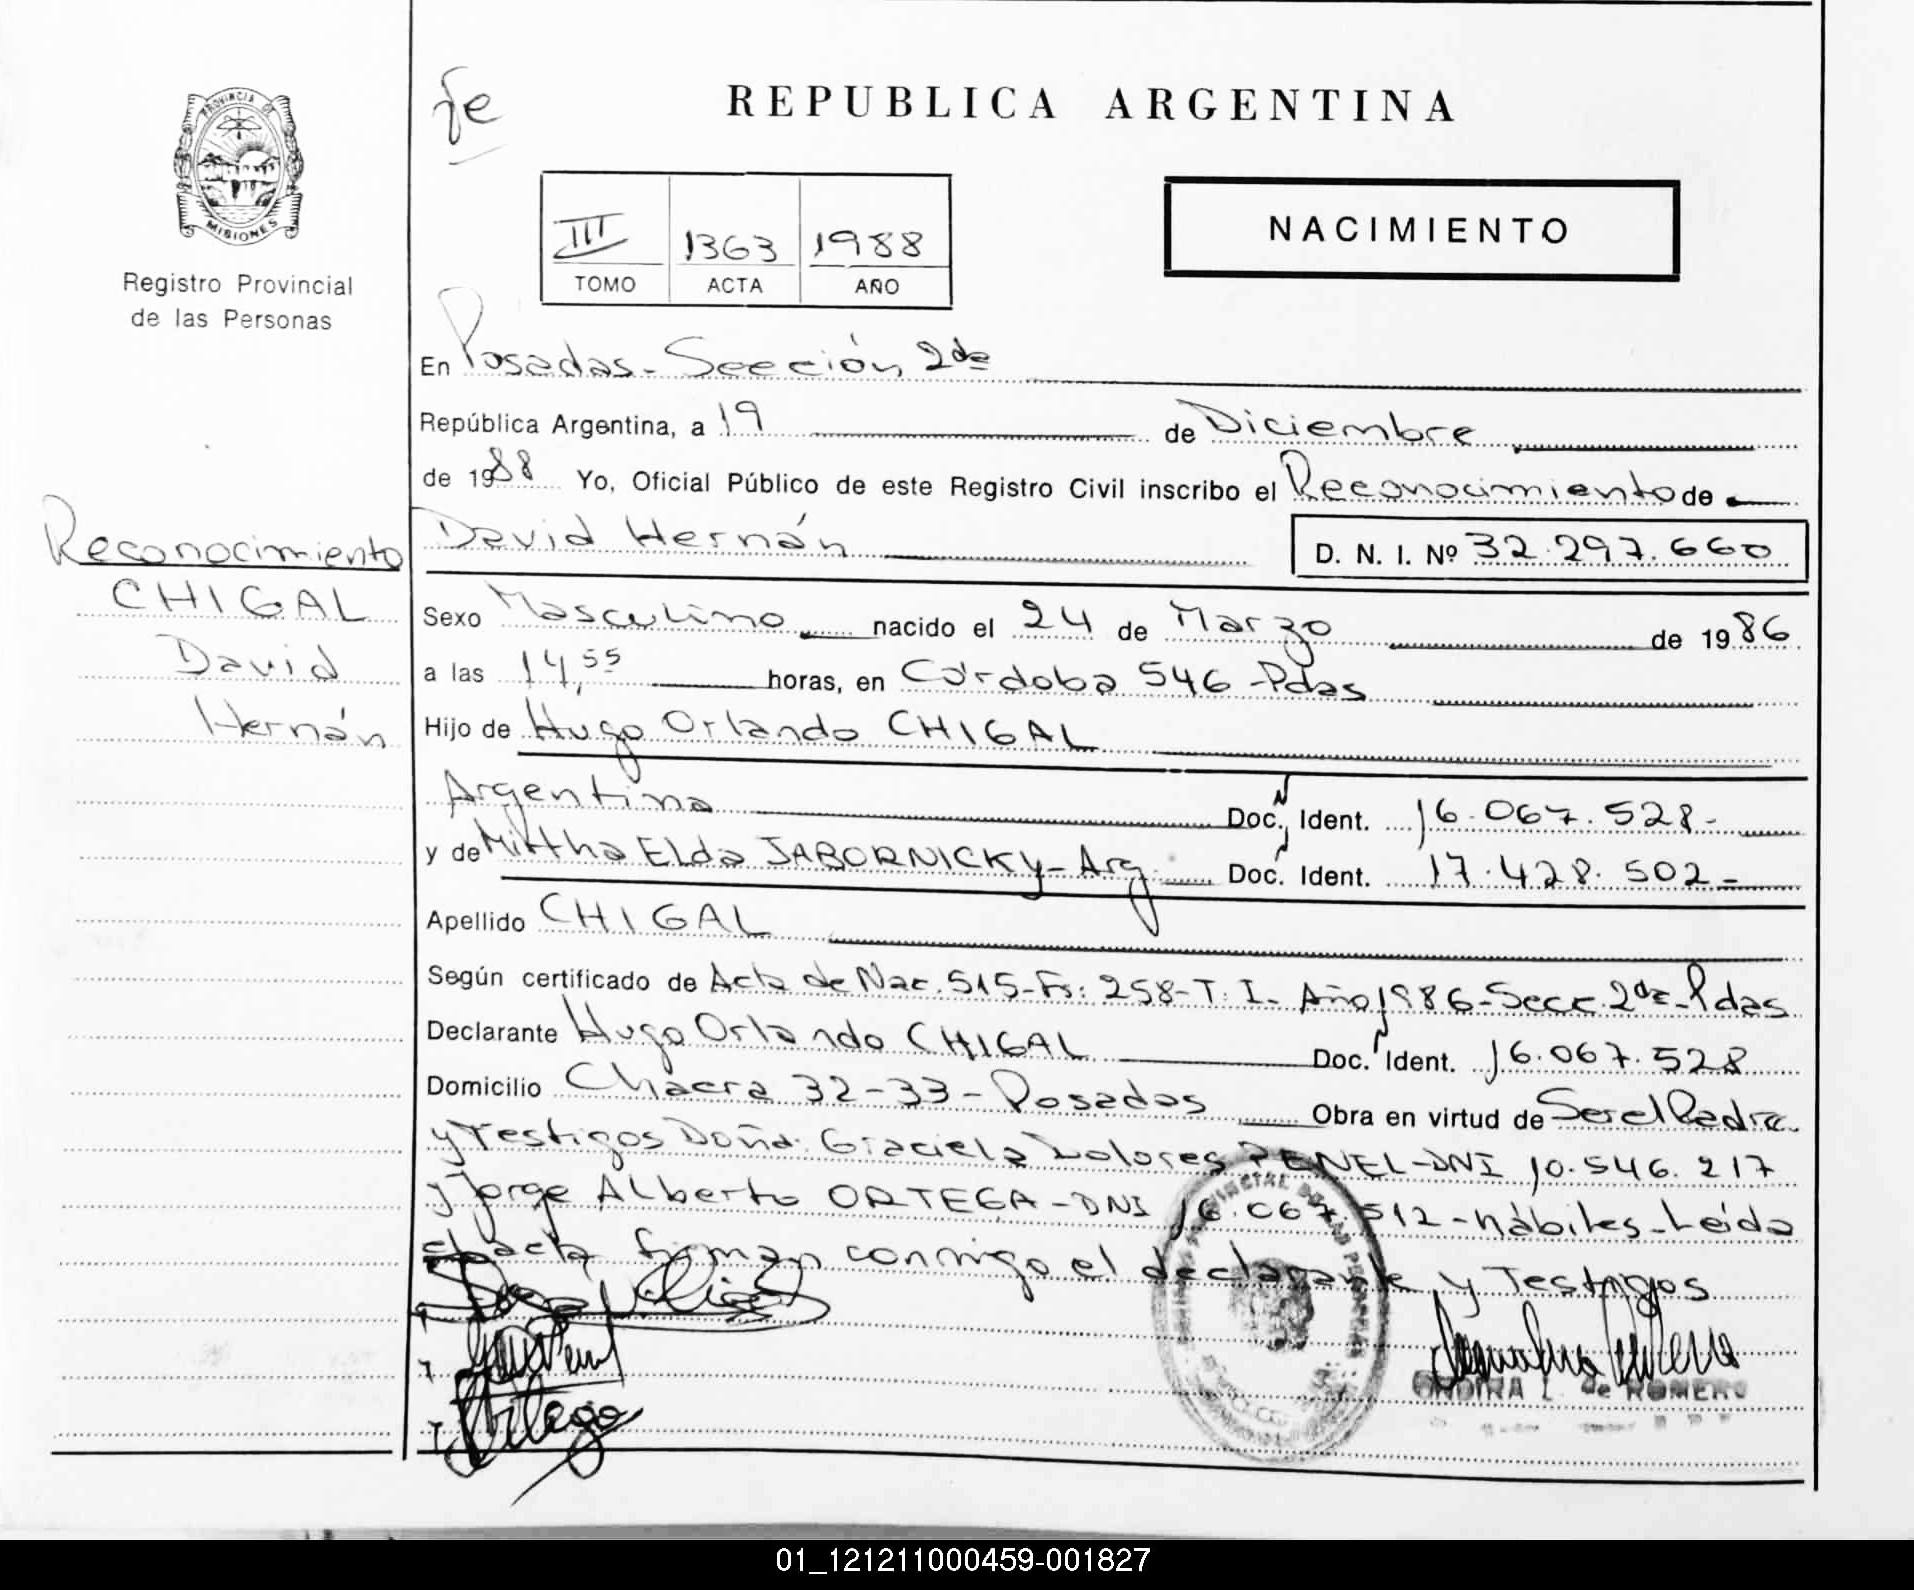 fe
REPUBLICA ARGENTINA
PROVINCIA DE
MISIONES
Registro Provincial
de las Personas
III 1363 1988
TOMO ACTA AÑO
NACIMIENTO
En Posadas - Sección 2da
República Argentina, a 19 de Diciembre
de 1988 Yo, Oficial Público de este Registro Civil inscribo el Reconocimiento de
David Hernán D. N. I. Nº 32.297.660
Reconocimiento
CHIGAL
David
Hernán
Sexo Masculino nacido el 24 de Marzo de 1986
a las 14,55 horas, en Córdoba 546 - Pdas
Hijo de Hugo Orlando CHIGAL
Argentino Doc. N Ident. 16.067.528-
y de Mirtha Elda JABORNICKY - Arg. Doc. Ident. 17.428.502-
Apellido CHIGAL
Según certificado de Acta de Nac. 515 - Fº: 258 - T. I - Año 1986 - Secc. 2da - Pdas
Declarante Hugo Orlando CHIGAL Doc. Ident. 16.067.528
Domicilio Chacra 32-33 - Posadas Obra en virtud de Ser el Padre
y Testigos Doña: Graciela Dolores PENEL - DNI 10.546.217
y Jorge Alberto ORTEGA - DNI 16.067.512 - hábiles - Leída
el acta firman conmigo el declarante y Testigos
de ROMERO
01_121211000459-001827